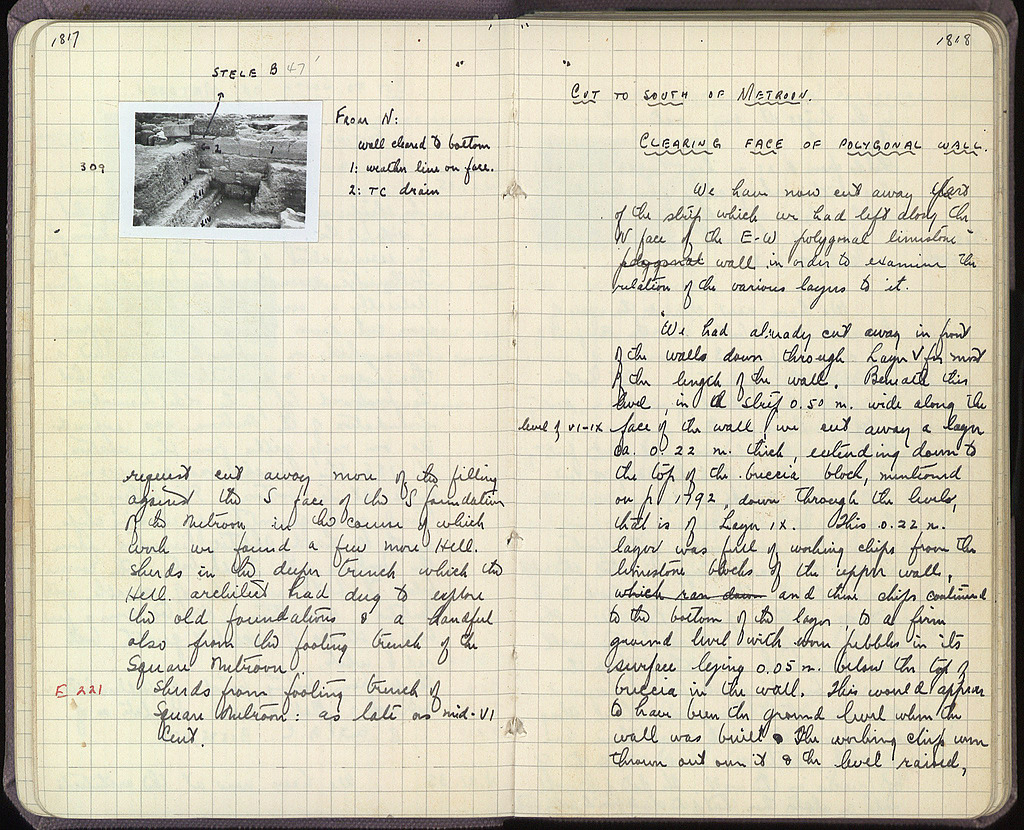 1817
STELE B 47
309
From N:
wall cleared to bottom
1: weather line on face.
2: TC drain
request cut away more of the filling
against the S face of the S foundation
of the Metroon in the course of which
work we found a few more Hell.
sherds in the deeper trench which the
Hell. architect had dug to explore
the old foundations & a handful
also from the footing trench of the
Square Metroon
E 221
Sherds from footing trench of
Square Metroon: as late as mid-VI
Cent.
1818
CUT TO SOUTH OF METROON.
CLEARING FACE OF POLYGONAL WALL.
We have now cut away part
of the strip which we had left along the
N face of the E-W polygonal limestone
polygonal wall in order to examine the
relation of the various layers to it.
We had already cut away in front
of the walls down through Layer V for most
of the length of the wall. Beneath this
level, in a strip 0.50 m. wide along the
level of VI-IX face of the wall we cut away a layer
ca. 0.22 m. thick, extending down to
the top of the breccia block, mentioned
on p. 1792, down through the levels,
that is of Layer IX. This 0.22 m.
layer was full of working chips from the
limestone blocks of the upper walls,
which ran down and these chips continued
to the bottom of the layer, to a firm
ground level with worn pebbles in its
surface lying 0.05 m. below the top of
breccia in the wall. This would appear
to have been the ground level when the
wall was built & the working chips were
thrown out over it & the level raised,